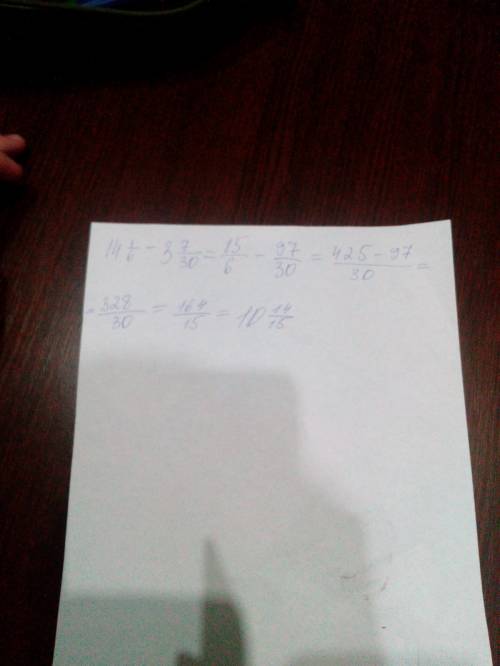 14 1/6 - 3 7/30 = 85/6 - 97/30 = (425 - 97)/30 =
= 328/30 = 164/15 = 10 14/15